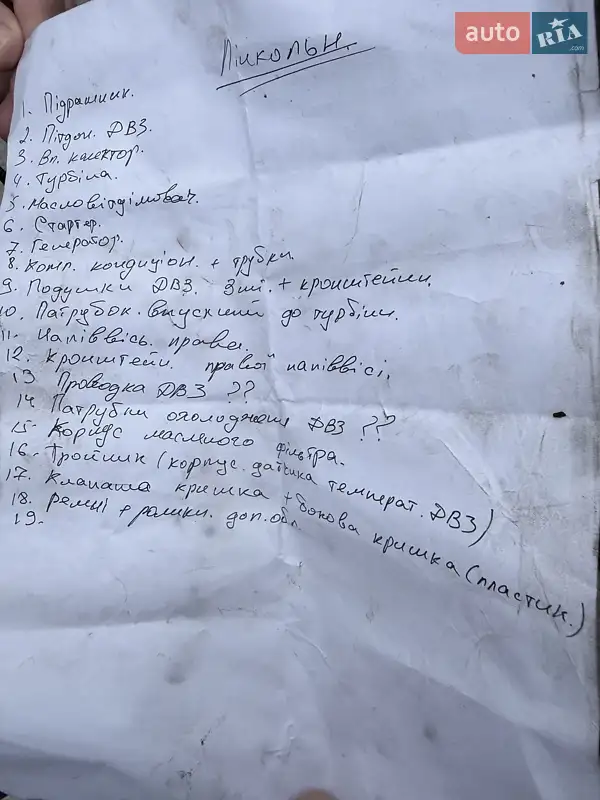 auto RIA .com
Лінкольн.
1. Підрамник.
2. Піддон. ДВЗ.
3. Вп. колектор.
4. Турбіна.
5. Масловідділювач.
6. Стартер.
7. Генератор.
8. Комп. кондиціон. + трубки.
9. Подушки ДВЗ. 3шт. + кронштейни.
10. Патрубок. впускний до турбіни.
11. Напіввісь. права.
12. Кронштейн. правої напіввісі.
13 Проводка ДВЗ ??
14 Патрубки охолодження ДВЗ ??
15. Корпус масляного фільтра.
16. Тройник (корпус. датчика температ. ДВЗ)
17. Клапана кришка + бокова кришка (пластик.)
18. Ремні + ролики. доп. обл.
19.